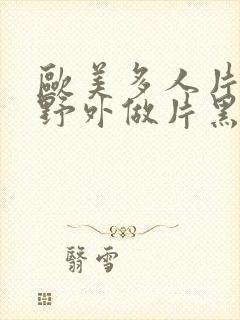 歐美多人片
野外做片黑
翳雪